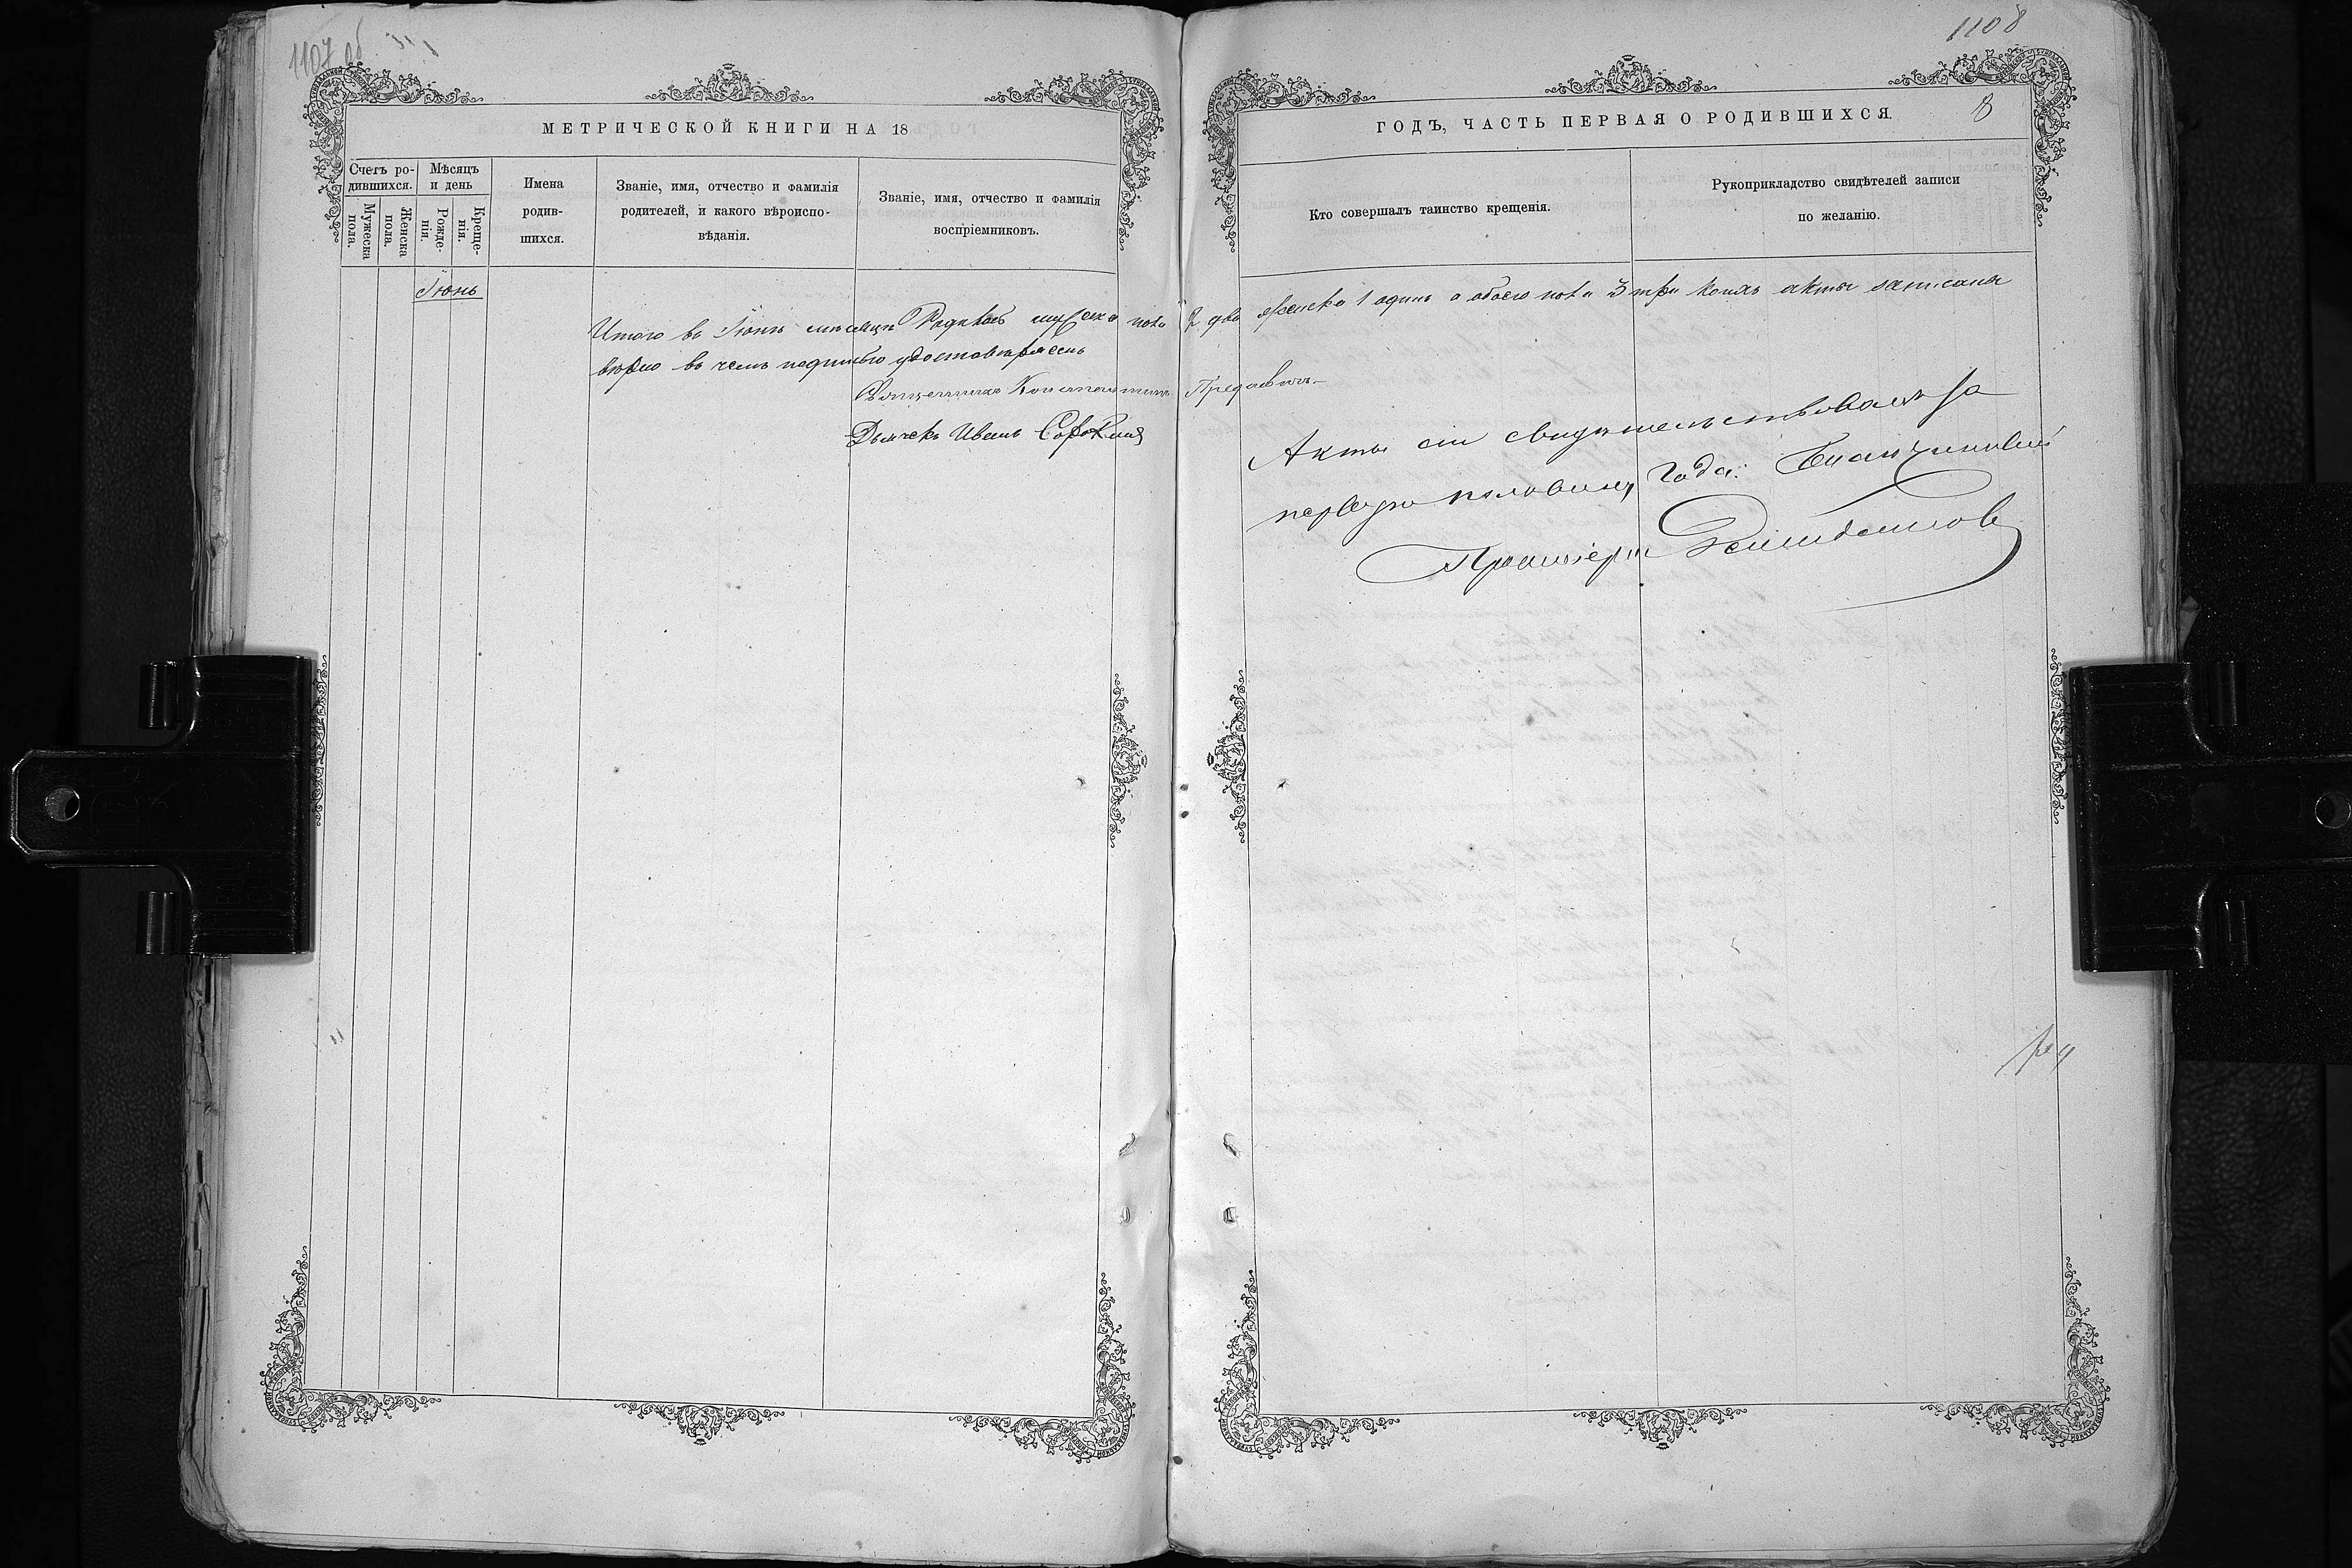 1107 об
МЕТРИЧЕСКОЙ КНИГИ НА 18
Счетъ родившихся.
Мужеска пола.
Женска пола.
Мѣсяцъ и день
Рожденія.
Крещенія.
Имена родившихся.
Званіе, имя, отчество и фамилія родителей, и какого вѣроисповѣданія.
Званіе, имя, отчество и фамилія воспріемниковъ.
Іюнь
Итого въ Іюнѣ мѣсяцѣ Родилось мужеска пола 2 два женска 1 одинъ а обоего пола 3 три коихъ акты записаны
вѣрно въ чемъ подписью удостовѣряемъ
Священникъ Константинъ
Дьячекъ Иванъ Сорокинъ
1108
ГОДЪ, ЧАСТЬ ПЕРВАЯ О РОДИВШИХСЯ.
8
Кто совершалъ таинство крещенія.
Рукоприкладство свидѣтелей записи по желанію.
Акты сіи свидѣтельствовалъ за
первую половину года: